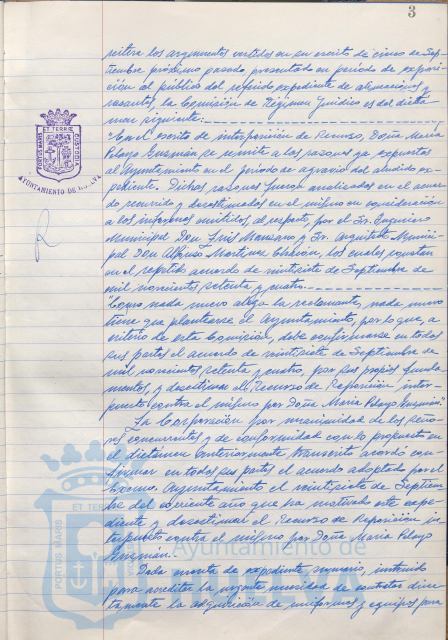 3
reitera los argumentos vertidos en su escrito de cinco de Sep-
tiembre próximo pasado presentado en período de exposi-
ción al público del referido expediente de alineaciones y
rasantes, la Comisión de Régimen Jurídico es del dicta-
men siguiente:
"En el escrito de interposición de Recurso, Doña María
Pelayo Guzmán se remite a las razones ya expuestas
al Ayuntamiento en el período de agravio del aludido ex-
pediente. Dichas razones fueron analizadas en el acuer-
do recurrido y desestimadas en el mismo en consideración
a los informes emitidos al respecto, por el Sr. Ingeniero
Municipal Don Luis Manzano y Sr. Arquitecto Munici-
pal Don Alfonso Martínez Chacón, los cuales constan
en el repetido acuerdo de veintisiete de Septiembre de
mil novecientos setenta y cuatro.
"Como nada nuevo alega la reclamante, nada nuevo
tiene que plantearse el Ayuntamiento, por lo que, a
criterio de esta Comisión, debe confirmarse en todas
sus partes el acuerdo de veintisiete de Septiembre de
mil novecientos setenta y cuatro, por sus propios funda-
mentos, y desestimar el Recurso de Reposición inter-
puesto contra el mismo por Doña María Pelayo Guzmán"
La Corporación por unanimidad de los seño-
res concurrentes y de conformidad con lo propuesto en
el dictamen anteriormente transcrito acordó con-
firmar en todas sus partes el acuerdo adoptado por el
Excmo. Ayuntamiento el veintisiete de Septiem-
bre del corriente año que ha motivado este expe-
diente y desestimar el Recurso de Reposición in-
terpuesto contra el mismo por Doña María Pelayo
Guzmán.
Dada cuenta de expediente sumario, instruido
para acreditar la urgente necesidad de contratar direc-
tamente la adquisición de uniformes y equipos para
PORTUS MARIS ET TERRE CUSTODIA
AYUNTAMIENTO DE HUELVA
PORTUS MARIS ET TERR
Ayuntamiento de
HUELVA